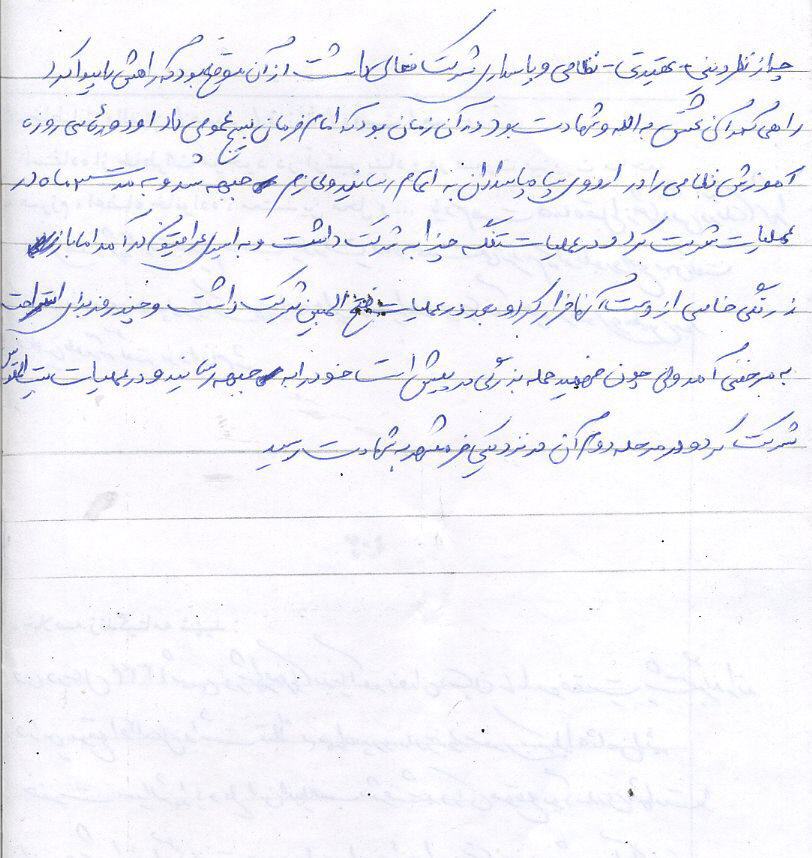 چه از نظر دینی - عقیدتی - نظامی و پاسداری شرکت فعالی داشت از آن موقع بود که راهش را پیدا کرد
راهی که در آن عشق به الله و شهادت بود در آن زمان بود که امام فرمان بسیج عمومی داد او دوره سی روزه
آموزش نظامی را در اردوی سپاه پاسداران به اتمام رسانید و عازم جبهه شد و به مدت ۳ ماه در
عملیات شرکت کرد و در عملیات تنگه چزابه شرکت داشت و به اسیری عراقیها در آمد اما با
زرنگی خاصی از دست آنها فرار کرد و بعد در عملیات فتح المبین شرکت داشت و چند روز برای استراحت
به مرخصی آمد ولی چون فهمید حمله بزرگی در پیش است خود را به جبهه رسانید و در عملیات بیت المقدس
شرکت کرد و در مرحله دوم آن در نزدیکی خرمشهر به شهادت رسید